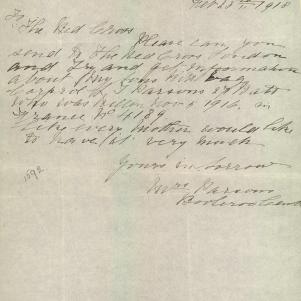 Feb 25th 1918
To The Red Cross
Please can you
send to the Red Cross London
and try and get information
about my sons kit bag
Corpral S J Parsons 27 Batt
who was killed Nov 5 1916 in
France No 4189
like every mother would like
to have it very much
Yours in sorrow
Mrs Parsons
Booleroo Centre
1892